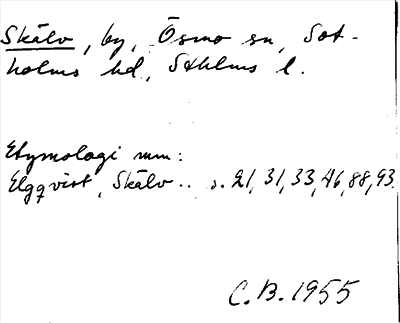 Skälv, by, Ösmo sn, Sot-
holms hd, Sthlms l.
Etymologi mm:
Elgqvist, Skälv .. s. 21, 31, 33, 46, 88, 93
C.B. 1955